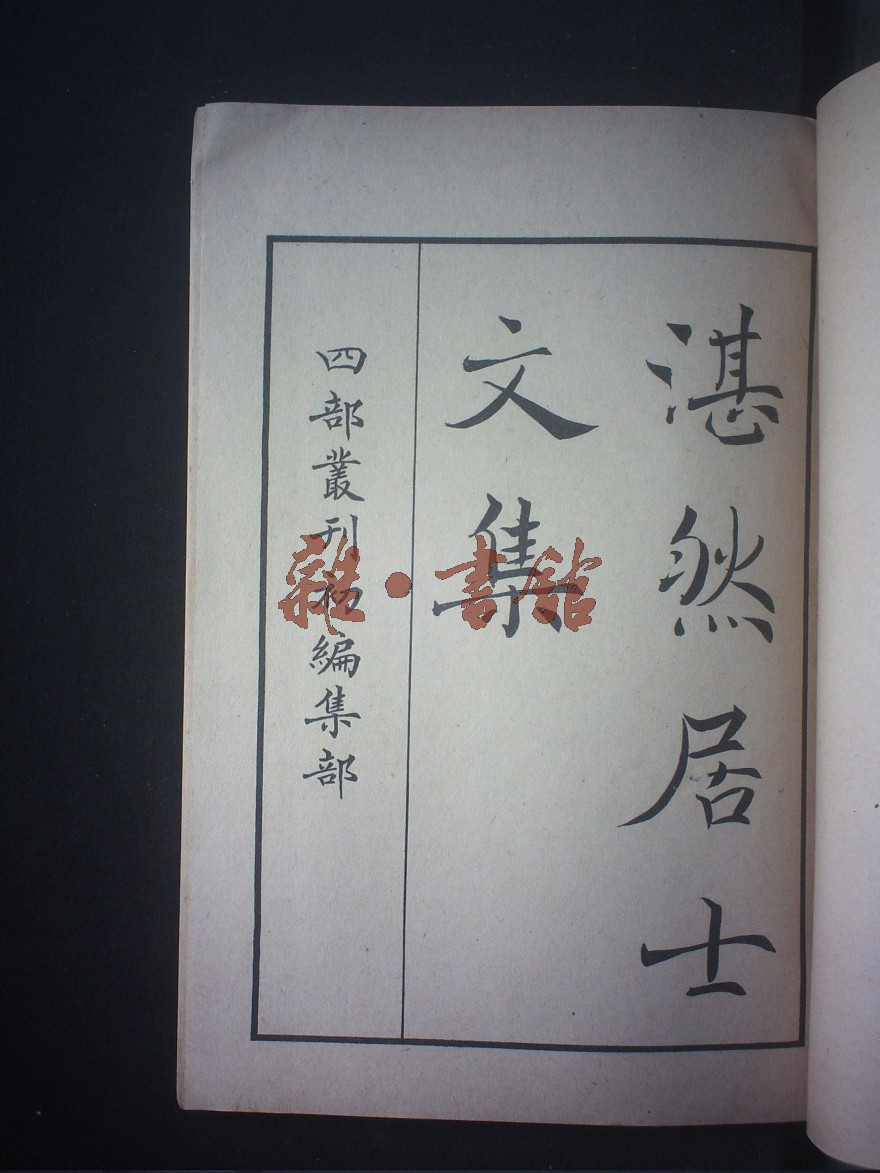 湛然居士
文集
四部叢刊初編集部
雜·書館